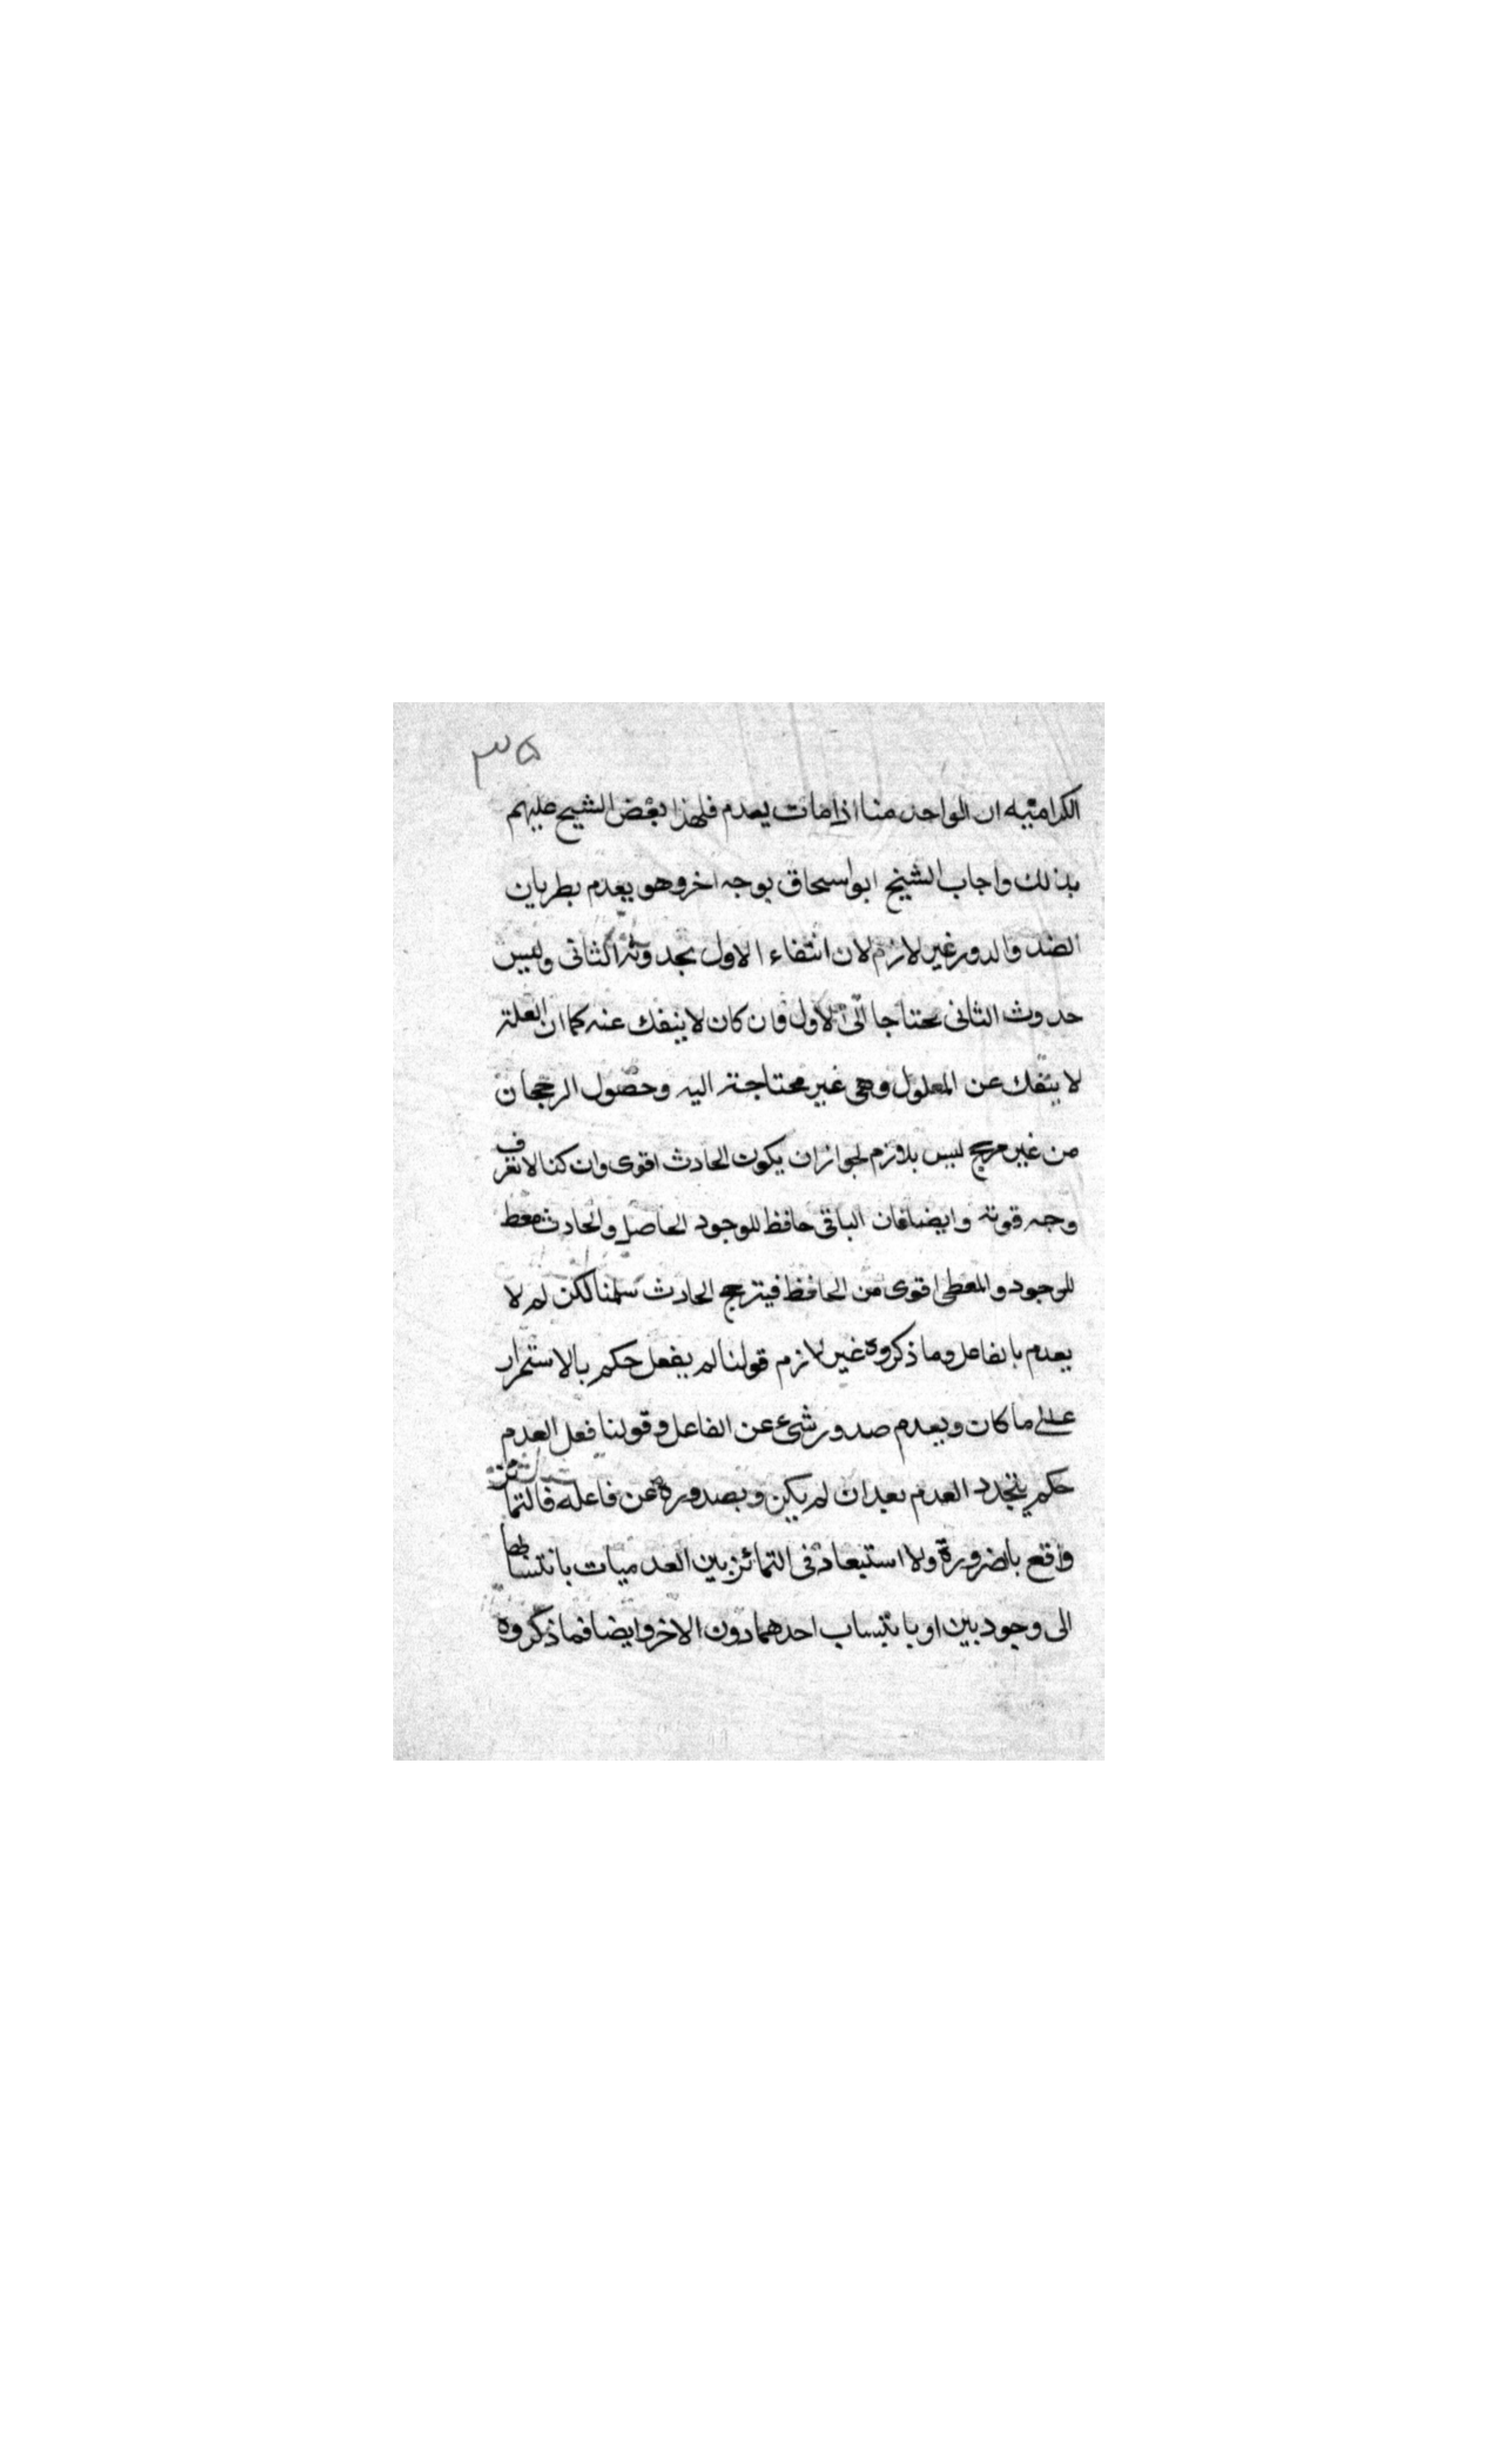 ٣۵
الكراميّه ان الواحد منا اذا مات يعدم فلهذا نقض الشيخ عليهم
بذلك واجاب الشيخ ابواسحاق بوجه اخر وهو يعدم بطريان
الضد والدور غير لازم لان انتفاء الاول بحدوث الثانى وليس
حدوث الثانى محتاجا الى الاول وان كان لا ينفك عنه كما ان العلة
لا ينفك عن المعلول وهى غير محتاجة اليه وحصول الرجحان
من غير مرجح ليس بلازم لجواز ان يكون الحادث اقوى وان كنا لا نعرف
وجه قوته وايضا فان الباقى حافظ للوجود الحاصل والحادث معط
للوجود والمعطى اقوى من الحافظ فيترجح الحادث سلمنا لكن لم لا
يعدم بالفاعل وما ذكروه غير لازم قولنا لم يفعل حكم بالاستمرار
على ما كان وبعدم صدور شئ عن الفاعل وقولنا فعل العدم
حكم بتجدد العدم بعد ان لم يكن وبصدوره عن فاعله فالتمائز
واقع بالضرورة ولا استبعاد فى التمائز بين العدميات بانتسابها
الى وجودين او بانتساب احدهما دون الاخر وايضا فما ذكروه